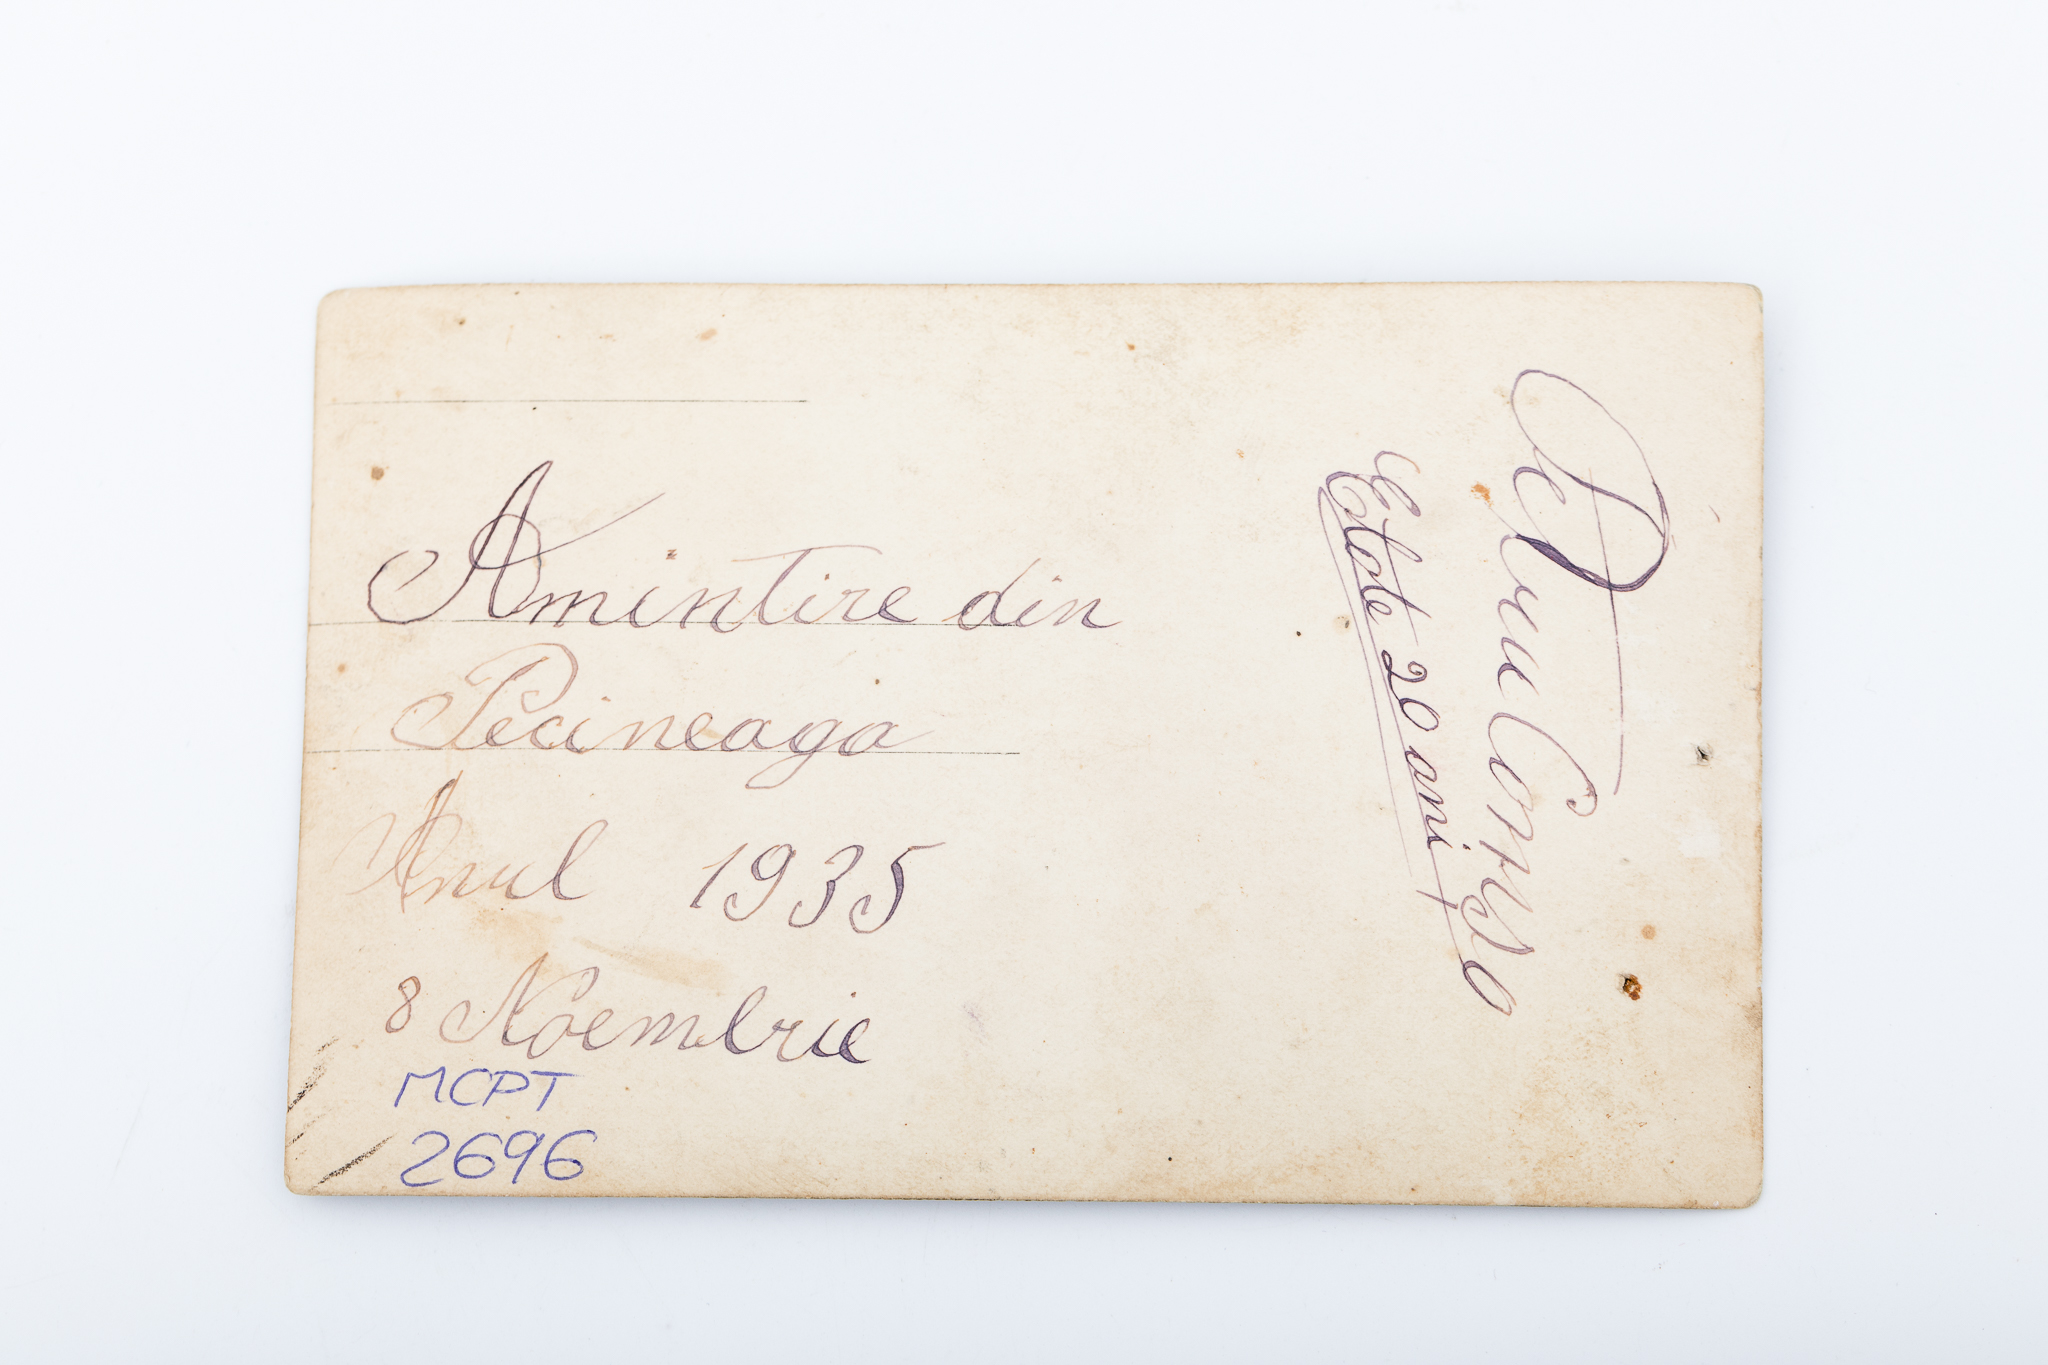 Amintire din
Pecineaga
Anul 1935
8 Noembrie
MCPT
2696
Petru
Etate 20 ani